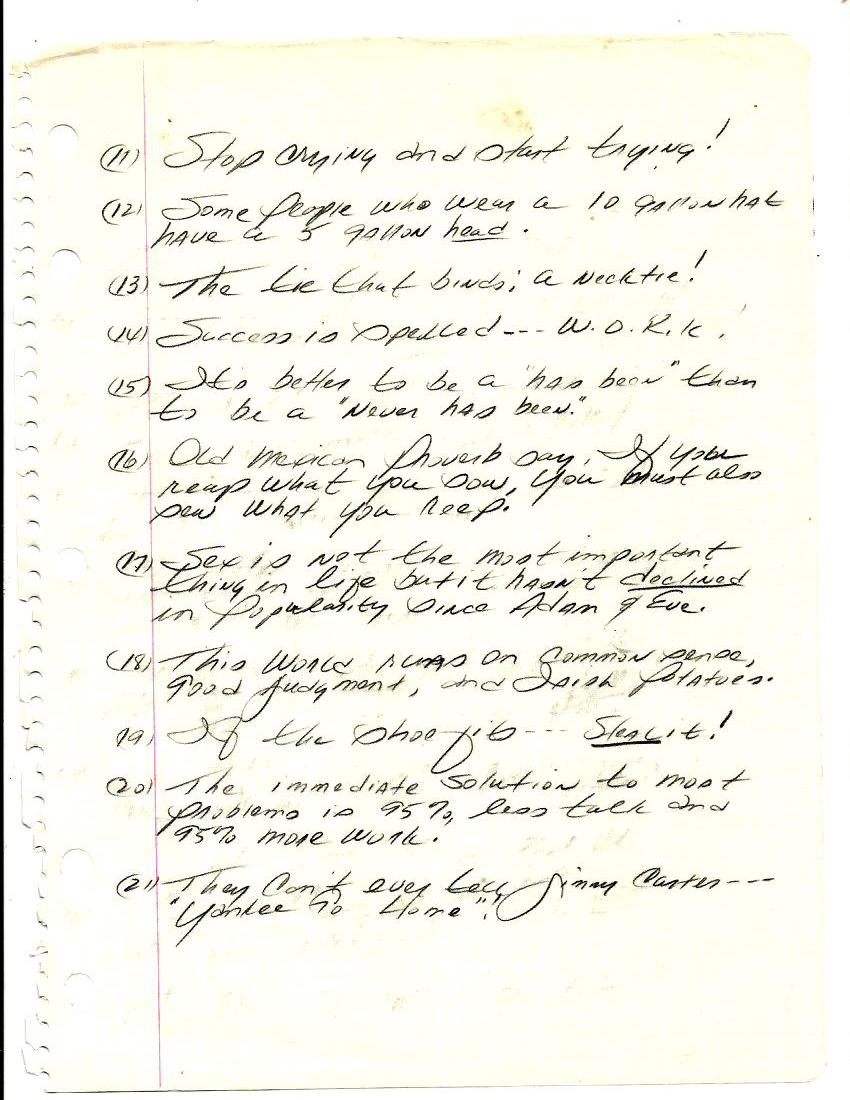 (11) Stop crying and start trying!
(12) Some people who wear a 10 gallon hat
have a 5 gallon head.
(13) The tie that binds; a necktie!
(14) Success is spelled --- W.O.R.K.!
(15) It's better to be a "has been" than
to be a "never has been."
(16) Old Mexican Proverb say, If you
reap what you sow, you must also
sew what you reep.
(17) Sex is not the most important
thing in life but it hasn't declined
in popularity since Adam & Eve.
(18) This World runs on common sense,
good judgment, and Irish potatoes.
19) If the shoe fits --- Steal it!
(20) The immediate solution to most
problems is 95% less talk and
95% more work.
(21) They can't ever tell Jimmy Carter ---
"Yankee Go Home"!